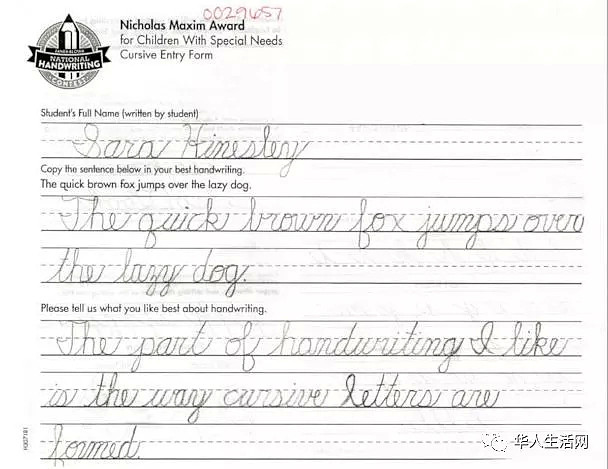 0029657
Nicholas Maxim Award
for Children With Special Needs
Cursive Entry Form
ZANER-BLOSER
NATIONAL
HANDWRITING
CONTEST
Student's Full Name (written by student)
Sara Hinesley
Copy the sentence below in your best handwriting.
The quick brown fox jumps over the lazy dog.
The quick brown fox jumps over
the lazy dog.
Please tell us what you like best about handwriting.
The part of handwriting I like
is the way cursive letters are
formed.
华人生活网